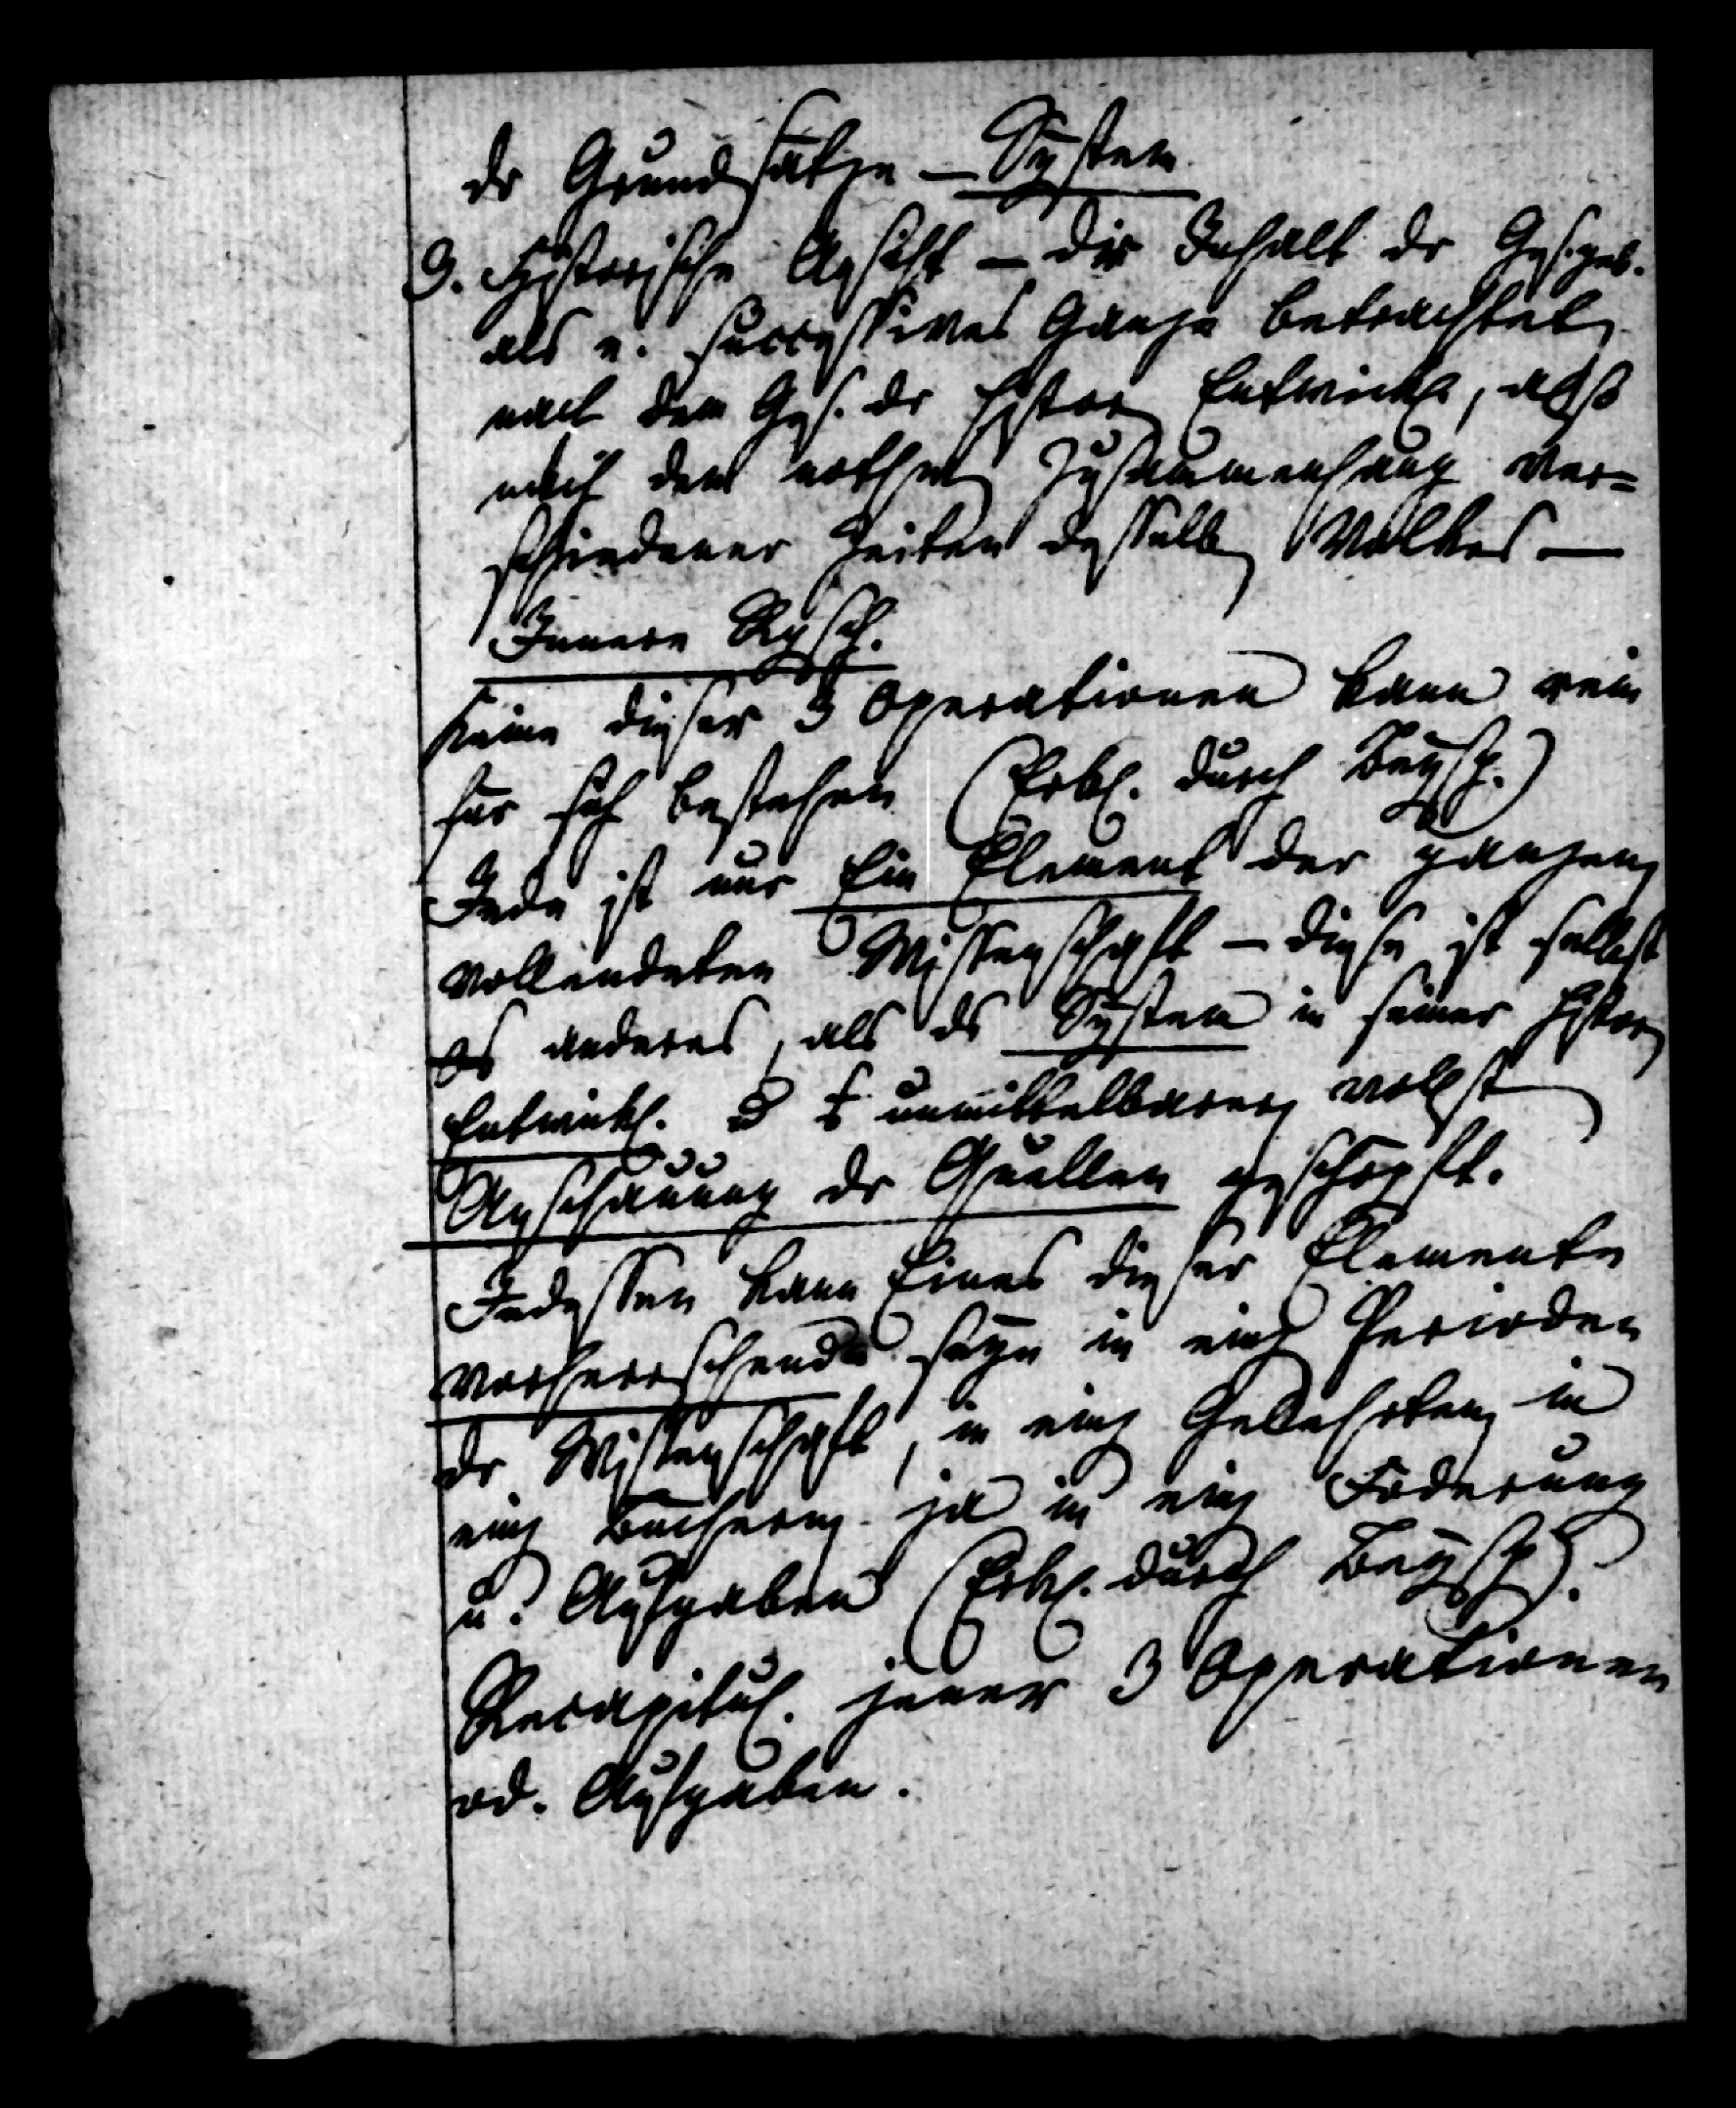 dr Grundsätze — System
3. Historische Ansicht — der Inhalt dr Gesezgeb.
als e. successives Ganze betrachtet
nach dem Ges. dr histor Entwickl, also
nach dem nothw Zusammenhang ver=
schiedener Zeiten desselb Volkes —
Innere RGsch.
Keine dieser 3 Operationen kann rein
für sich bestehen (Erkl. durch Beysp.)
Jede ist nur Ein Element der ganzen
vollendeten Wissenschaft — diese ist selbst
anderes, als ds System in seiner histor
Entwickl. unmittelbarer vollst
Anschauung dr Quellen geschöpft.
Indessen kann Eines dieser Elemente
vorherrschend seyn in einz Perioden
dr Wissenschaft, in einz Gelehrten in
einz Büchern ja in einz Foderung
u. Aufgaben (Erkl. durch Beysp).
Recapitul. jener 3 Operationen
od. Aufgaben.